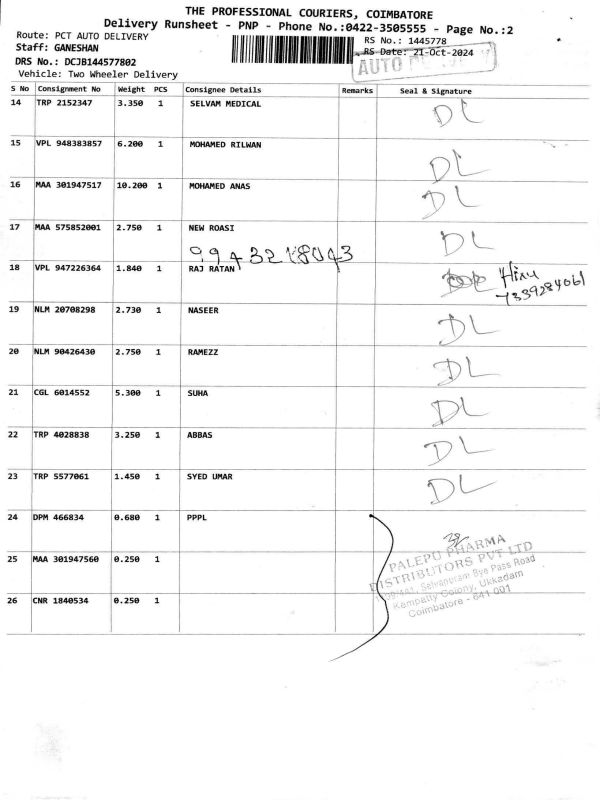 THE PROFESSIONAL COURIERS, COIMBATORE
Delivery Runsheet - PNP - Phone No.:0422-3505555 - Page No.:2
Route: PCT AUTO DELIVERY
RS No.: 1445778
Staff: GANESHAN
RS Date: 21-Oct-2024
DRS No.: DCJB144577802
AUTO
Vehicle: Two Wheeler Delivery
S No Consignment No Weight PCS Consignee Details Remarks Seal & Signature
14 TRP 2152347 3.350 1 SELVAM MEDICAL DL
15 VPL 948383857 6.200 1 MOHAMED RILWAN DL
16 MAA 301947517 10.200 1 MOHAMED ANAS DL
17 MAA 575852001 2.750 1 NEW ROASI DL
9943218043
18 VPL 947226364 1.840 1 RAJ RATAN Hiru
7339284061
19 NLM 20708298 2.730 1 NASEER DL
20 NLM 90426430 2.750 1 RAMEZZ DL
21 CGL 6014552 5.300 1 SUHA DL
22 TRP 4028838 3.250 1 ABBAS DL
23 TRP 5577061 1.450 1 SYED UMAR DL
24 DPM 466834 0.680 1 PPPL
PALEPU PHARMA
DISTRIBUTORS PVT LTD
25 MAA 301947560 0.250 1
Selvapuram Bye Pass Road
Kempatty Colony, Ukkadam
26 CNR 1840534 0.250 1
Coimbatore - 641 001